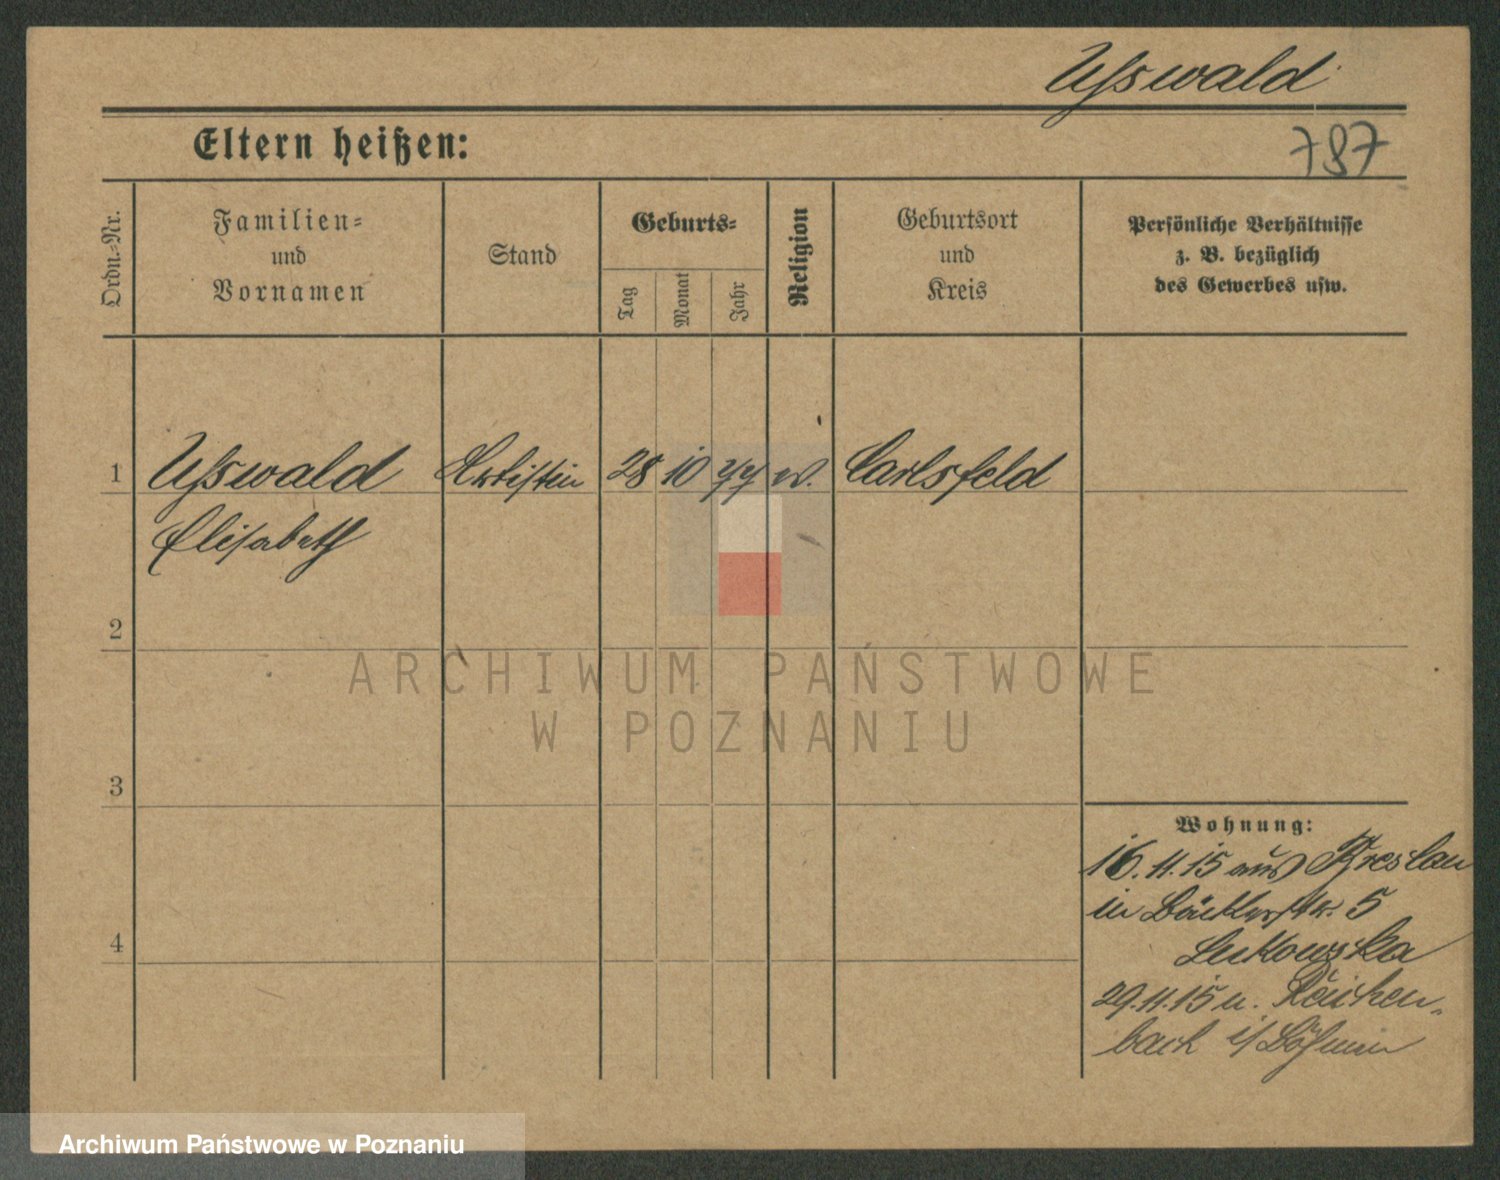 Ußwald
Eltern heißen:
787
Ordn.-Nr.
Familien-
und
Vornamen
Stand
Geburts-
Tag
Monat
Jahr
Religion
Geburtsort
und
Kreis
Persönliche Verhältnisse
z. B. bezüglich
des Gewerbes usw.
1
Ußwald Artistin 28 10 Carlsfeld
Elisabeth
2
3
4
Wohnung:
16.11.15 aus Breslau
in Bäckerstr. 5
Lukowska
29.11.15 n. Reichen-
bach i/Böhmen
ARCHIWUM PAŃSTWOWE
W POZNANIU
Archiwum Państwowe w Poznaniu